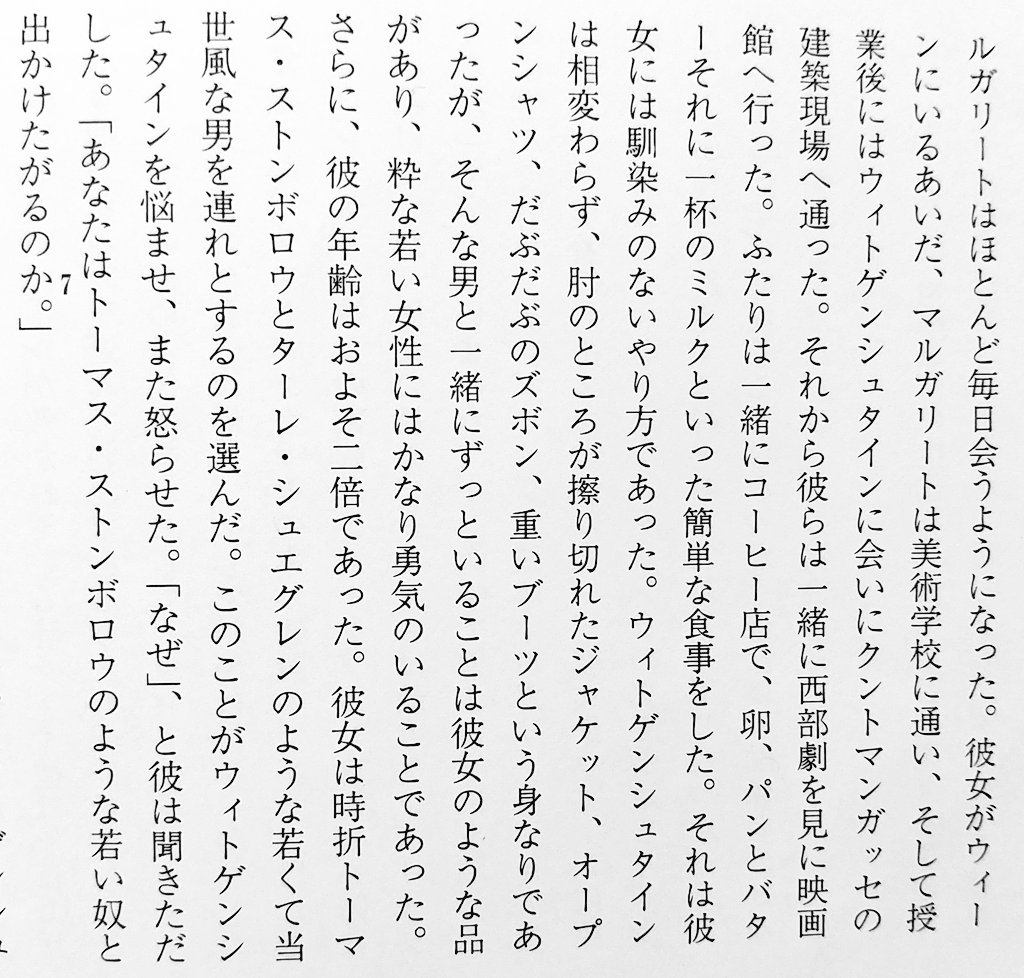 ルガリートはほとんど毎日会うようになった。彼女がウィー
ンにいるあいだ、マルガリートは美術学校に通い、そして授
業後にはウィトゲンシュタインに会いにクントマンガッセの
建築現場へ通った。それから彼らは一緒に西部劇を見に映画
館へ行った。ふたりは一緒にコーヒー店で、卵、パンとバタ
ーそれに一杯のミルクといった簡単な食事をした。それは彼
女には馴染みのないやり方であった。ウィトゲンシュタイン
は相変わらず、肘のところが擦り切れたジャケット、オープ
ンシャツ、だぶだぶのズボン、重いブーツという身なりであ
ったが、そんな男と一緒にずっといることは彼女のような品
があり、粋な若い女性にはかなり勇気のいることであった。
さらに、彼の年齢はおよそ二倍であった。彼女は時折トーマ
ス・ストンボロウとターレ・シュエグレンのような若くて当
世風な男を連れとするのを選んだ。このことがウィトゲンシ
ュタインを悩ませ、また怒らせた。「なぜ」、と彼は聞きただ
した。「あなたはトーマス・ストンボロウのような若い奴と
出かけたがるのか。」7